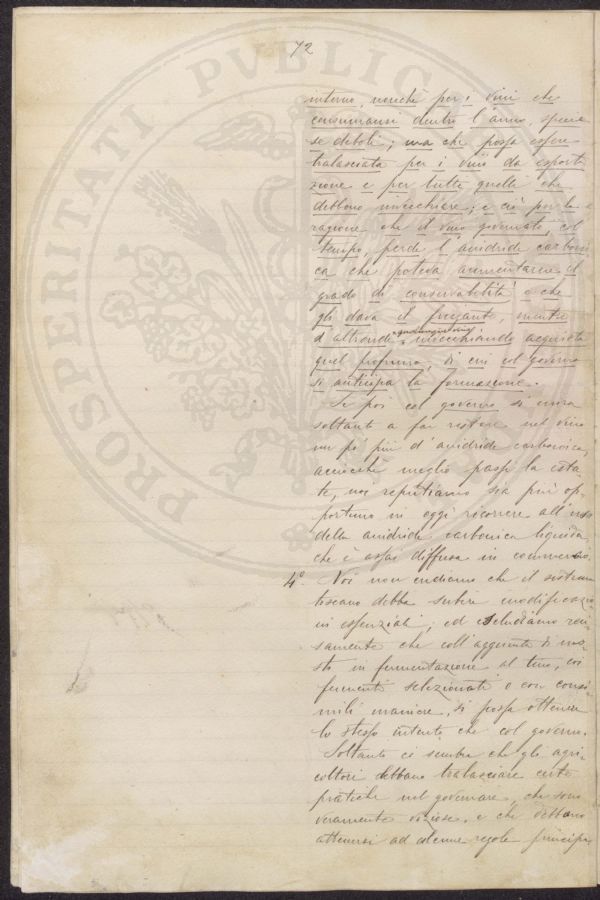 72
interno, nonchè per i vini che
consumansi dentro l'anno, specie
se deboli; ma che possa essere
tralasciata per i vini da esporta
zione e per tutti quelli che
debbono invecchiare; e ciò per la
ragione che il vino governato, col
tempo, perde l'anidride carboni
ca che poteva aumentarne il
grado di conservabilità e che
gli dava il frizzante, mentre
d'altronde invecchiando acquista
quel profumo, di cui col governo
si anticipa la formazione.
Se poi col governo si mira
soltanto a far restare nel vino
un pò più d'anidride carbonica,
acciocchè meglio passi la esta
te, noi reputiamo sia più op-
portuno in oggi ricorrere all'uso
della anidride carbonica liquida
che è assai diffusa in commercio.
4º- Noi non crediamo che il sistema
toscano debba subire modificazio
ni essenziali; ed escludiamo reci
samente che coll'aggiunta di mo-
sti in fermentazione al tino, coi
fermenti selezionati o con consi
mili maniere, si possa ottenere
lo stesso intento che col governo.
Soltanto ci sembra che gli agri-
coltori debbano tralasciare certe
pratiche nel governare, che sono
veramente viziose, e che debbano
attenersi ad alcune regole principa
PROSPERITATI PVBLICAE